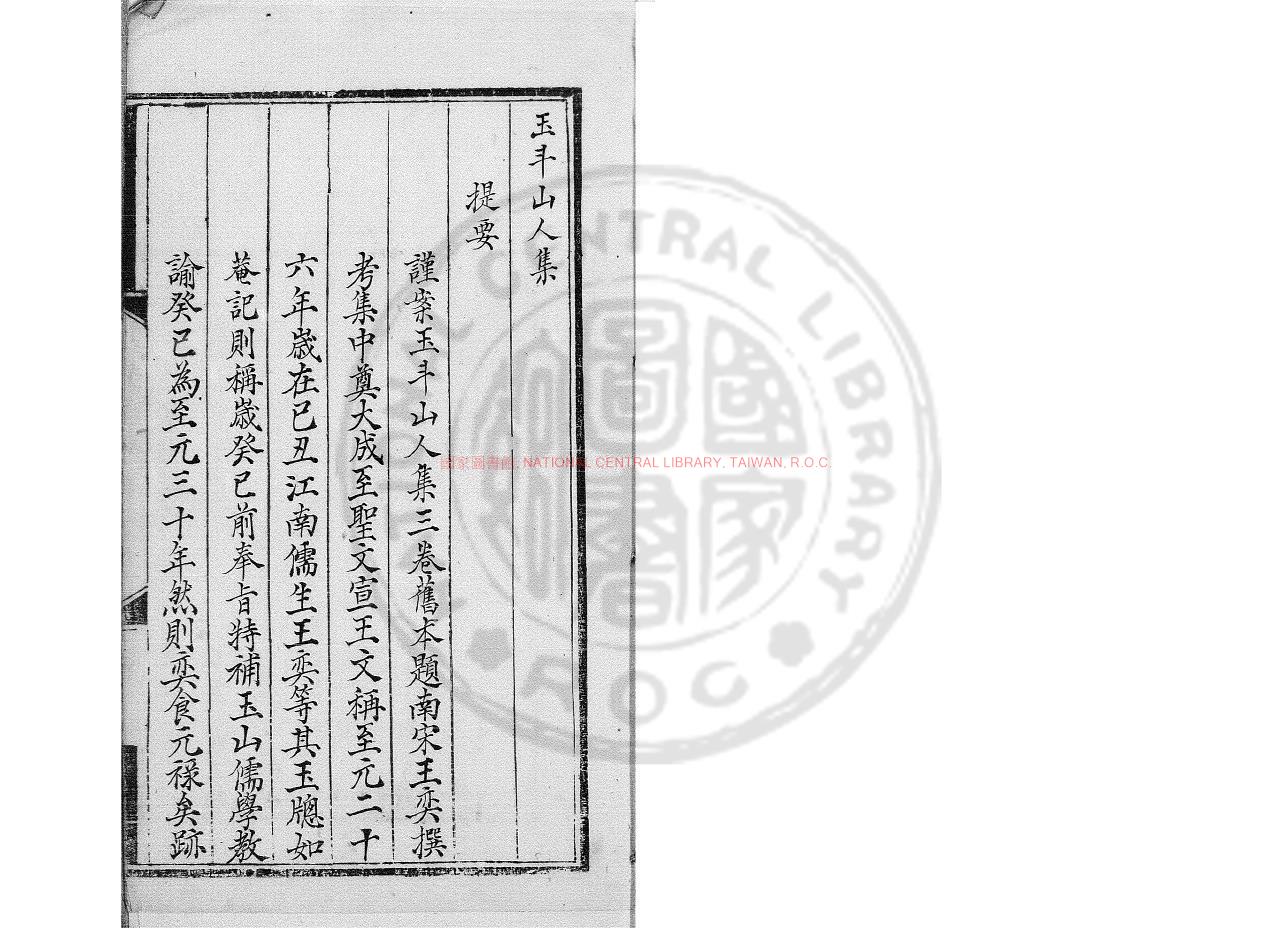 玉斗山人集
提要
謹案玉斗山人集三卷舊本題南宋王奕撰
考集中奠大成至聖文宣王文稱至元二十
六年歲在已丑江南儒生王奕等其玉牕如
菴記則稱歲癸已前奉旨特補玉山儒學教
諭癸已為至元三十年然則奕食元祿矣跡
國家圖書館, NATIONAL CENTRAL LIBRARY, TAIWAN, R.O.C.
NATIONAL CENTRAL LIBRARY
R.O.C
國家圖書館